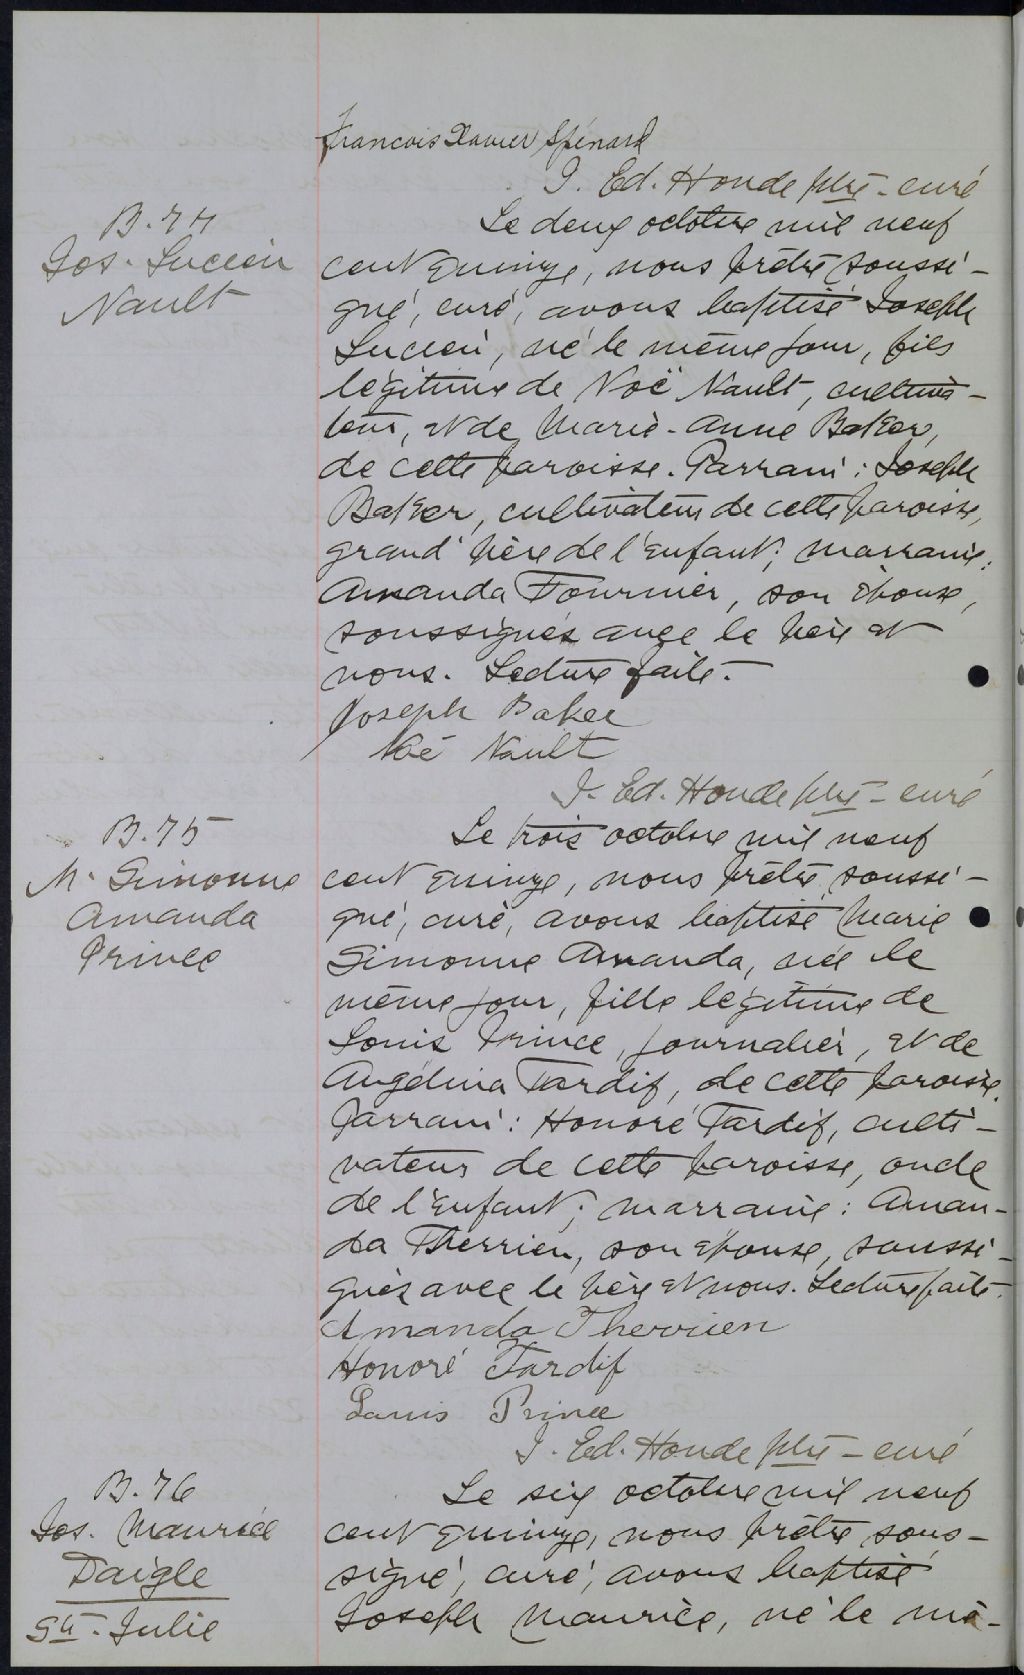 Francois Xavier Spénard
J. Ed. Houde ptre - curé
B. 74
Jos. Lucien
Nault
Le deux octobre mil neuf
cent quinze, nous prêtre soussi-
gné, curé, avons baptisé Joseph
Lucien, né le même jour, fils
légitime de Noé Nault, cultiva-
teur, et de Marie-Anne Baker,
de cette paroisse. Parrain : Joseph
Baker, cultivateur de cette paroisse,
grand'père de l'enfant; marraine:
Amanda Fournier, son épouse,
soussignés avec le père et
nous. Lecture faite.
Joseph Baker
Noé Nault
J. Ed. Houde ptre - curé
B. 75
M. Simonne
Amanda
Prince
Le trois octobre mil neuf
cent quinze, nous prêtre soussi-
gné, curé, avons baptisé Marie
Simonne Amanda, née le
même jour, fille légitime de
Louis Prince, journalier, et de
Angélina Tardif, de cette paroisse.
Parrain : Honoré Tardif, culti-
vateur de cette paroisse, oncle
de l'enfant; marraine : Aman-
da Therrien, son épouse, soussi-
gnés avec le père et nous. Lecture faite.
Amanda Therrien
Honoré Tardif
Louis Prince
J. Ed. Houde ptre - curé
B. 76
Jos. Maurice
Daigle
Ste. Julie
Le six octobre mil neuf
cent quinze, nous prêtre sous-
signé, curé, avons baptisé
Joseph Maurice, né le mê-